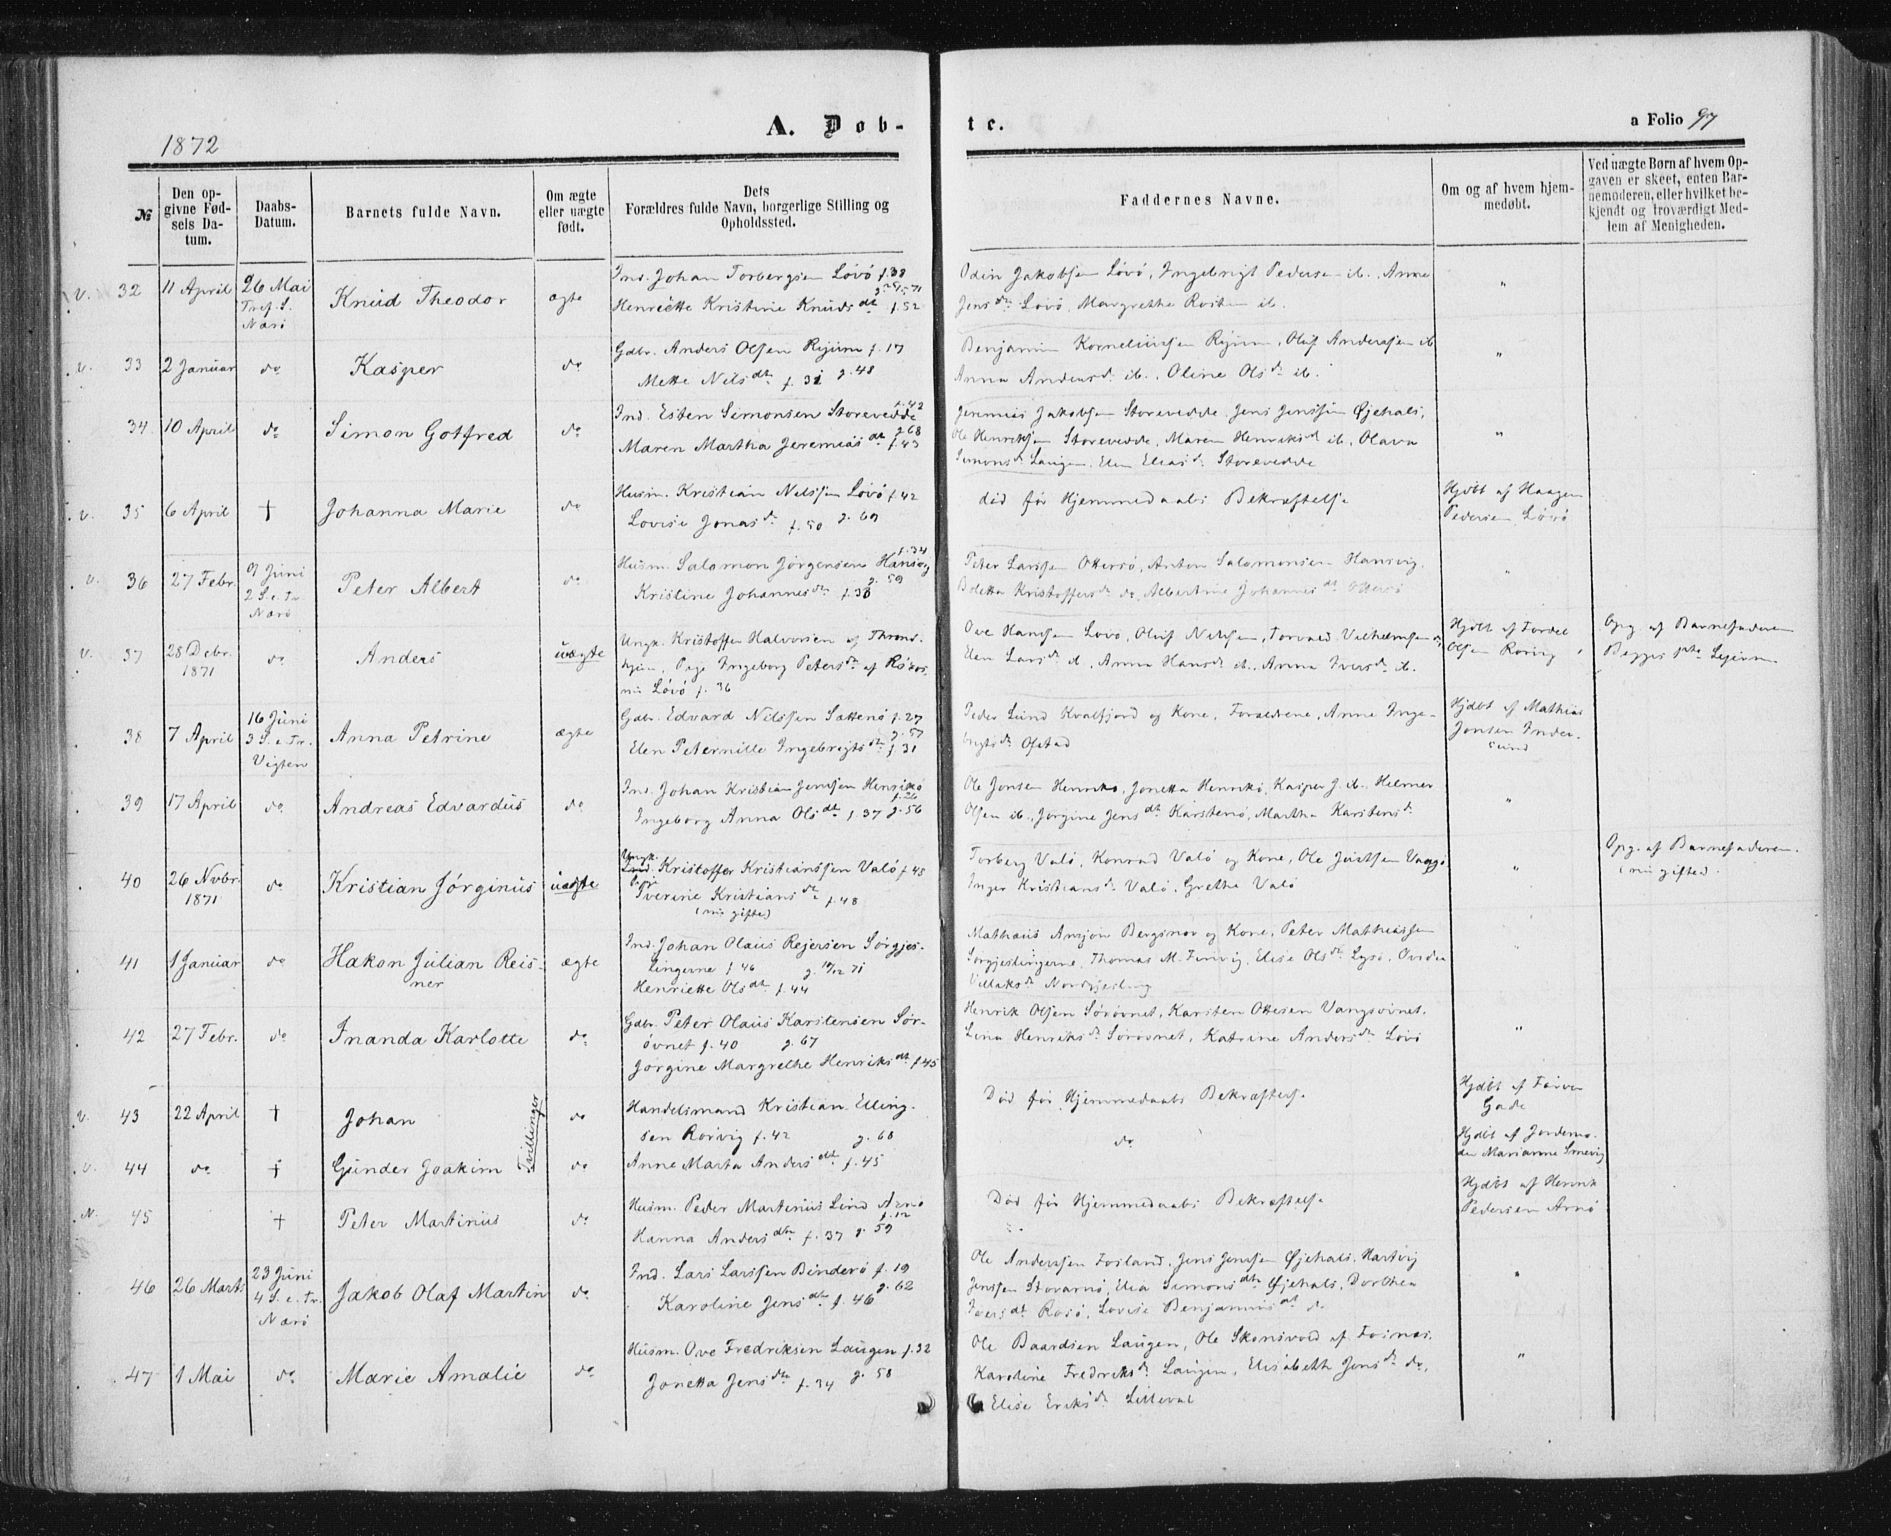 1872
A. Døb-
te.
a Folio 97
№
Den opgivne Fødsels Datum.
Daabs-Datum.
Barnets fulde Navn.
Om ægte eller uægte født.
Dets Forældres fulde Navn, borgerlige Stilling og Opholdssted.
Faddernes Navne.
Om og af hvem hjemmedøbt.
Ved uægte Børn af hvem Opgaven er skeet, enten Barnemoderen, eller hvilket bekjendt og troværdigt Medlem af Menigheden.
v. 32 11 April 26 Mai Tref. S. Nærö Knud Theodor ægte
Ind. Johan Torbergsen Lövö f. 38
Henriette Kristine Knudsdt f. 52
Odin Jakobsen Lövö, Ingebrigt Pedersen ib. Anne
Jensdt Lövö, Margrethe ib.
v. 33 2 Januar do Kasper do
Gdbr. Anders Olsen Ryum f. 17
Mette Nilsdt f. 31 g. 48
Benjamin Korneliussen Ryum, Oluf Andersen ib
Anna Andersd. ib. Oline Olsd. ib.
34. 10 April do Simon Gotfred do
Ind. Esten Simonsen Storevedde f. 42
g. 68
Maren Martha Jeremiasdt f. 43
Jeremias Jakobsen Storevedde, Jens Jenssen Øjehals,
Ole Henriksen Storevedde, Maren Henriksd ib, Olava
Simonsd. Laugen, Elen Eliasd. Storevedde
v. 35 6 April † Johanna Marie do
Husm. Kristian Nilssen Lövö f. 42
Lovise Jonasd. f. 50 g. 69
död för Hjemmedaabs Bekræftelse
Hjdbt af Haagen
Pedersen Lövö
v. 36 27 Febr. 9 Juni 2 S. e. Tr Nærö Peter Albert do
Husm. Salomon Jörgensen Hansvg f. 34
g. 59
Kristine Johannesdtr f. 38
Peter Larssen Otterső, Anton Salomonsen Hansvig,
Boletta Kristoffersd. do, Albertine Johannesdt Ottersö
v. 37 28 Debr. 1871 do Anders uægte
Ungk. Kristoffer Halvorsen af Thrond-
hjem, Pige Ingeborg Petersd. af Röros,
nu Lövö f. 36
Ove Hansen Lövö, Oluf Nilssen, Torvald Vilhelmsen do,
Elen Larsd. ib, Anna Hansd. ib., Anna Iversd. ib.
Hjdbt af Tordel
Olsen Rörvig
Opg af Barnefaderen
Begges
38 7 April 16 Juni 3 S. e. Tr. Vigten Anna Petrine ægte
Gdbr. Edvard Nilssen Sættenö f. 27
g. 57
Elen Peternille Ingebrigtsdt f. 31
Peder Lund Kvalfjord og Kone, Forældrene, Anne Inge-
brigtsd. Ofstad
Hjdbt af Mathias
Jonsen Inder-
sund
39 17 April do Andreas Edvardus do
Ind. Johan Kristian Jenssen Henrikö
f. 26
Ingeborg Anna Olsdt f. 37 g. 56
Ole Jonsen Henrikö, Jonetta Henrikö, Kasper J. ib. Helmer
Olsen ib., Jörgine Jensdt Karstenö, Martha Karstensd.
40 26 Nvbr. 1871 do Kristian Jörginus uægte
Ungk.
Kristoffer Kristianssen Valö f. 45
Iverine Kristiansdt f. 48
(nu gifte)
Torberg Valö, Konrad Valö og Kone, Ole Justsen
Inger Kristiansd. Valö, Grethe Valö
Opg. af Barnefaderen.
(nu gifte).
41 1 Januar do Hakon Julian Reis-
ner ægte
Ind. Johan Olaus Rejersen Sörgjes-
lingerne f. 46 g. 10/12 71
Henriette Olsdt f. 44
Mathæus Anzjon Bergsnov og Kone, Peter Mathiassen
Sörgjeslingerne, Thomas M. Finvig, Elise Olsdt Lysö,
Nordgjesling
42 27 Febr. do Inanda Karlotte do
Gdbr. Peter Olaus Karstensen Sör-
övnet f. 40 g. 67
Jörgine Margrethe Henriksdt f. 45
Henrik Olsen Sörövnet, Karsten Ottesen Vangsövnet,
Lina Henriksd. Sörövnet, Katrine Andersd. Lövö
v. 43 22 April † Johan Tvillinger do
Handelsmand Kristian Elling-
sen Rörvig f. 42 g. 68
Död för Hjemmedaabs Bekræftelse
Hjdbt af Farver
Gade
v. 44 do † Gunder Joakim do
Anne Marta Andersdt f. 45
do
Hjdbt af Jordemo-
der Marianne
N. 45 † Peter Martinus do
Husm. Peder Martinus Lind Arnö
f. 12
Hanna Andersdtr f. 37 g. 59
Död för Hjemmedaabs Bekræftelse
Hjdbt af Henrik
Pedersen Arnö
46 26 Marts 23 Juni 4 S. e. Tr. Nærö Jakob Olaf Martin do
Ind. Lars Larssen Binderö f. 19
Karoline Jensdt f. 46 g. 62
Ole Anderssen Foiland, Jens Jenssen Øjehals, Hartvig
Jenssen Stovarnö, Elea Simonsdt Øjehals, Dorthea
Iversdt Rosö, Lovise Benjaminsdt do
47 1 Mai do Marie Amalie do
Husm. Ove Fredriksen Laugen f. 32
Jonetta Jensdtr f. 34 g. 58
Ole Baardsen Laugen, Ole Skonsvold af Fosnæs,
Karoline Fredriksd. Laugen, Elisabeth Jensd. do,
Elise Eriksd. Lilleval